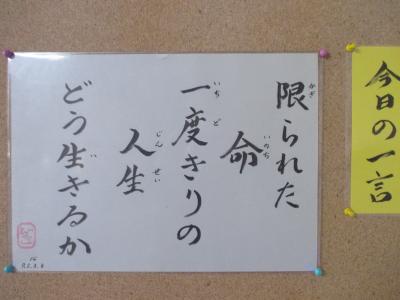 今日の一言
限られた
命
一度きりの
人生
どう生きるか